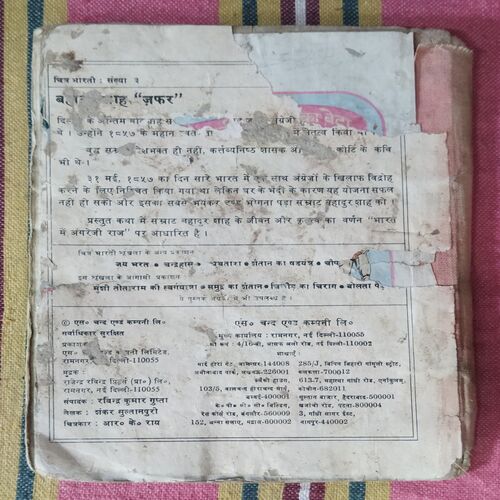 चित्र भारती : संख्या ३
शाह "ज़फर"
के अन्तिम
थे । उन्होंने १८५७ के महान
भक्त ही नहीं, कर्त्तव्यनिष्ठ शासक कोटि के कवि
भी थे-।
३१ मई, १८५७ का दिन सारे भारत में एक साथ अंग्रेजों के खिलाफ विद्रोह
करने के लिए निश्चित किया गया था लेकिन घर के भेदी के कारण यह योजना सफल
नहीं हो सकी और इसका सबसे भयंकर दण्ड भोगना पड़ा सम्राट बहादुर शाह को ।
प्रस्तुत कथा में सम्राट बहादुर शाह के जीवन और कृतित्व का वर्णन "भारत
में अंगरेजी राज" पर आधारित है ।
चित्र भारती श्रृंखला के अन्य प्रकाशन
जय भरत • चन्द्रहास • ध्रुवतारा • शैतान का षडयंत्र •
इस श्रृंखला के आगामी प्रकाशन
मुंशी तोताराम की स्वर्गयात्रा • समुद्र का शैतान • का चिराग • बोलता
ये पुस्तकें अंग्रेजी में भी उपलब्ध हैं ।
© एस० चन्द एण्ड कम्पनी लि०
सर्वाधिकार सुरक्षित
प्रकाशक
एस० चन्द एण्ड कम्पनी लिमिटेड,
रामनगर, नई दिल्ली-110055
मुद्रक :
राजेन्द्र रविन्द्र प्रिंटर्स (प्रा०) लि०,
रामनगर, नई दिल्ली-110055
संपादक : रविन्द्र कुमार गुप्ता
लेखक : शंकर सुल्तानपुरी
चित्रकार : आर० के० राय
एस० चन्द एण्ड कम्पनी लि०
मुख्य कार्यालय : रामनगर, नई दिल्ली-110055
शो रूम : 4/16-बी, आसफ अली रोड, नई दिल्ली-110002
शाखाएँ :
माई हीरां गेट, जालन्धर-144008 285/J, बिपिन बिहारी गांगुली स्ट्रीट,
अमीनाबाद पार्क, लखनऊ-226001 कलकत्ता-700012
ब्लैकी हाउस, 613.7, महात्मा गांधी रोड, एर्नाकुलम,
103/5, वालचन्द हीराचन्द मार्ग, कोचीन-682011
बम्बई-400001 सुल्तान बाजार, हैदराबाद-500001
के० पी० सी० सी० बिल्डिंग, खजांची रोड, पटना-800004
रेस कोर्स रोड, बंगलौर-560009 3, गांधी सागर ईस्ट,
152, अन्ना सलाए, मद्रास-600002 नागपुर-440002